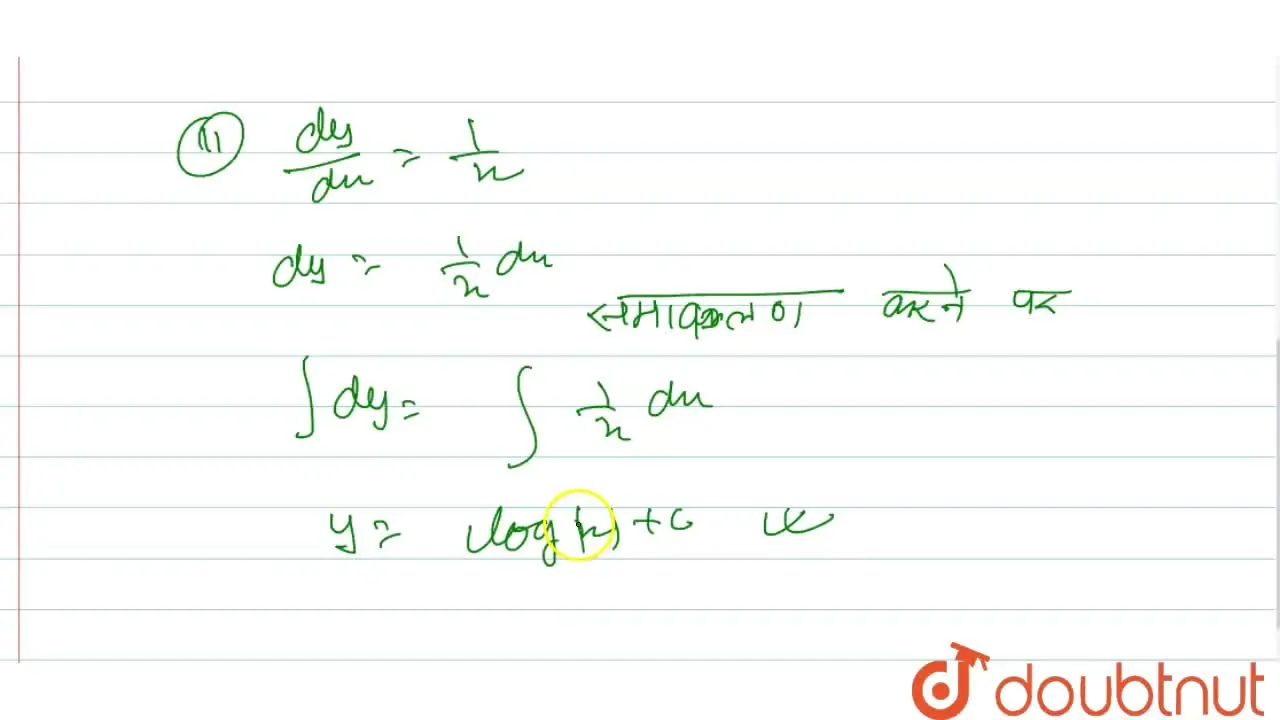 (11) dy/dx = 1/x
dy = 1/x dx
समाकलन करने पर
∫ dy = ∫ 1/x dx
y = log|x| + c
doubtnut